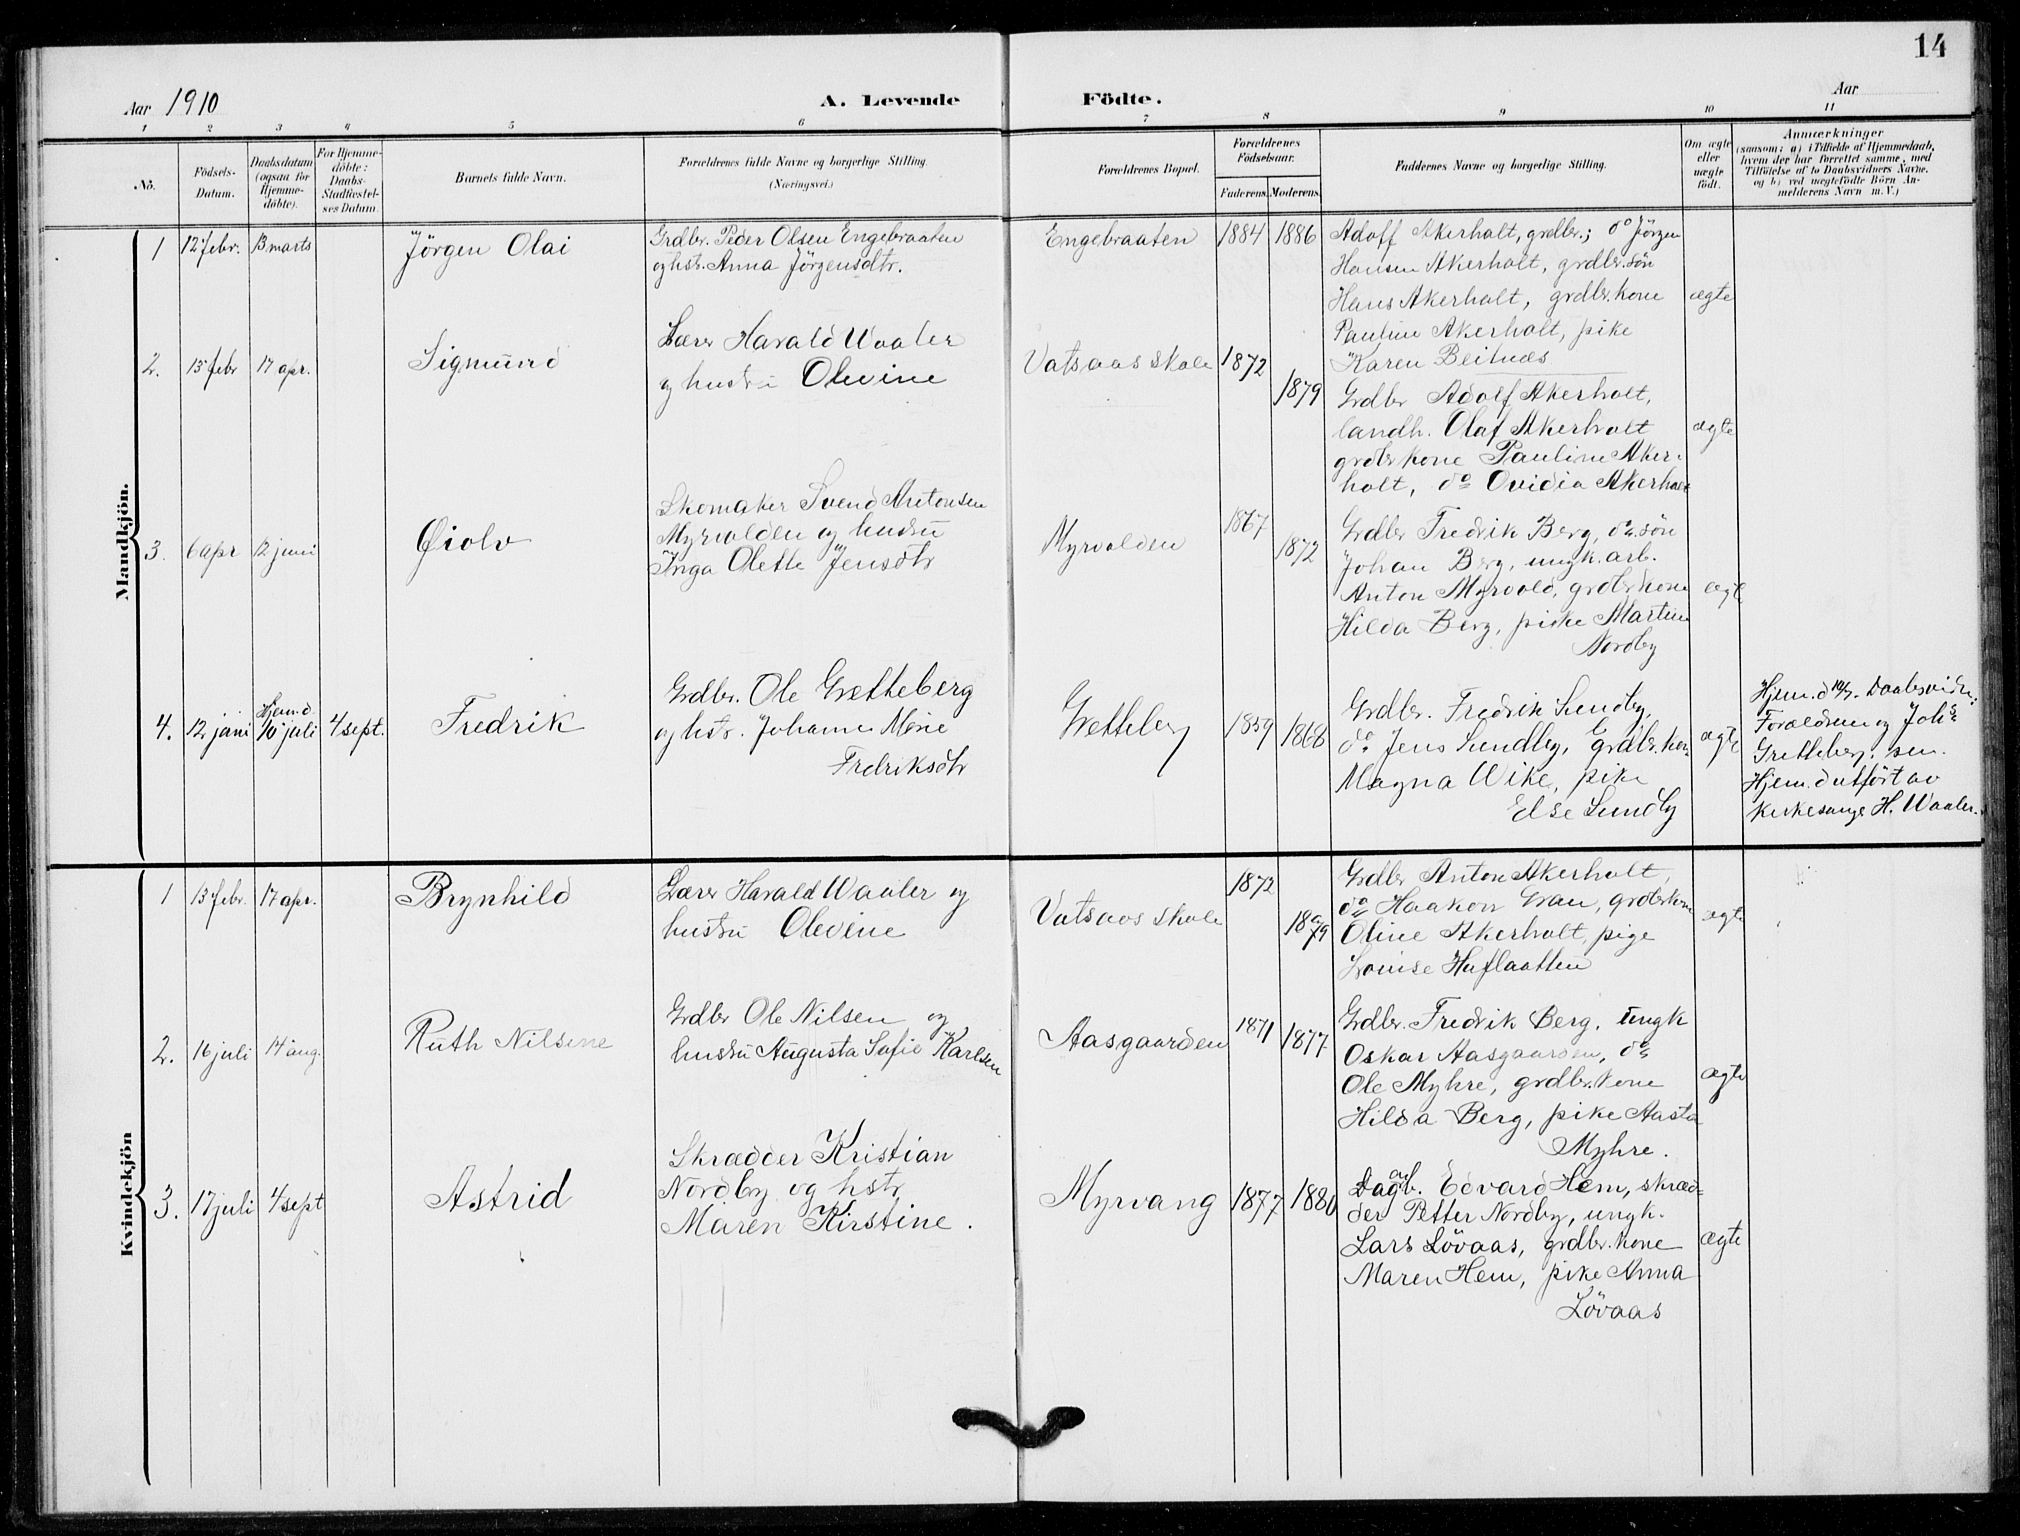 14
Aar 1910
A. Levende Födte.
Aar
1 2 3 4 5 6 7 8 9 10 11
No.
Födsels-Datum.
Daabsdatum (ogsaa for Hjemme-döbte).
For Hjemme-döbte: Daabs-Stadfæstel-ses Datum
Barnets fulde Navn.
Forældrenes fulde Navne og borgerlige Stilling.
(Næringsvei.)
Forældrenes Bopæl.
Forældrenes Födselsaar.
Faderens. Moderens.
Faddernes Navne og borgerlige Stilling.
Om ægte eller uægte födt.
Anmærkninger
(saasom: a) i Tilfælde af Hjemmedaab,
hvem der har forrettet samme, med
Tilföielse af to Daabsvidners Navne.
og b) ved uægtefödte Börn An-
melderens Navn m. V.)
Mandkjön.
1 12 febr. 13 marts Jörgen Olai
Grdbr. Peder Olsen Engebraaten
og hstr. Anna Jörgensdtr.
Engebraaten 1884 1886
Adolf Akerholt, grdbr.; do Jörgen
Hansen Akerholt, grdbr. sön
Hans Akerholt, grdbr. kone
Pauline Akerholt, pike
Karen Beitnes
ægte
2. 15 febr 17 apr. Sigmund
Lærer Harald Waaler
og hustru Olevine
Vatsaas skole 1872 1879
Grdbr Adolf Akerholt,
landh. Olaf Akerholt
grdbr kone Pauline Aker-
holt, do Ovidia Akerholt
ægte
3. 6 apr 12 juni Øiolv
Skomaker Svend Antonsen
Myrvolden og hustru
Inga Olette Jensdtr
Myrvolden 1867 1872
Grdbr Fredrik Berg, do sön
Johan Berg, ungk. arb.
Anton Myrvold, grdbr kone
Hilda Berg, pike Martine
Nordby
ægte
4. 12 juni Hjem.d. 10 juli 4 sept. Fredrik
Grdbr. Ole Gretteberg
og hstr. Johanne Marie
Fredriksdtr
Gretteberg 1859 1868
Grdbr. Fredrik Sundby,
do Jens Sundby, Grdbr. kone
Magna Wike, pike
Else Sundby
ægte
Hjem.d. 10/7. Daabsvidn.:
Forældrene og Johs
Gretteberg. sen.
Hjem.d utfört av
Kirkesanger H. Waaler.
Kvindekjön
1 15 febr. 17 apr. Brynhild
Lærer Harald Waaler og
hustru Olevine
Vatsaas skole 1872 1879
Grdbr Anton Akerholt,
do Haakon Gran, grdbr kone
Oline Akerholt, pige
Louise Huflaatten
ægte
2. 16 juli 14 aug. Ruth Nilsine
Grdbr Ole Nilsen og
hustru Augusta Sofie Karlsen
Aasgaarden 1871 1877
Grdbr. Fredrik Berg, ungk
Oskar Aasgaarden, do
Ole Myhre, grdbr. kone
Hilda Berg, pike Aasta
Myhre.
ægte
3. 17 juli 4 sept Astrid
Skrædder Kristian
Nordby og hstr
Maren Kirstine.
Myrvang 1877 1880
Dagarb. Edvard Hem, skræd-
der Petter Nordby, ungk.
Lars Lövaas, grdbr. kone
Maren Hem, pike Anna
Lövaas
ægte